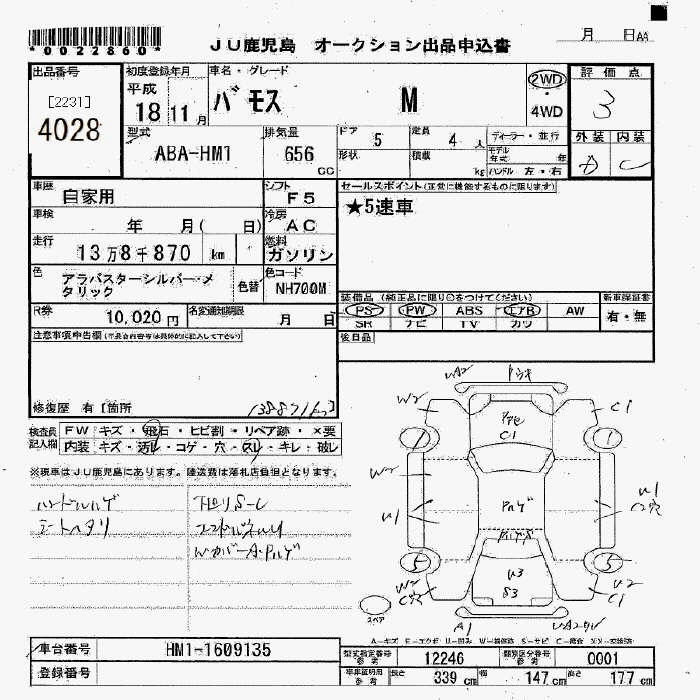 *0022860*
JU鹿児島 オークション出品申込書
月 日AA
出品番号
[2231]
4028
初度登録年月
平成
18 11月
車名・グレード
バモス M
2WD
・
4WD
評価点
3
外装 内装
D C
型式
ABA-HM1
排気量
656
cc
ドア 5
定員 4 人
ディーラー・並行
形状
積載 kg
モデル年式 年
ハンドル 左・右
車歴 自家用
シフト F5
車検 年 月( 日)
冷房 AC
走行 13万8千870 km
燃料 ガソリン
色 アラバスターシルバーメタリック
色替
色コード NH700M
R券 10,020円
名変通知期限 月 日
セールスポイント(正常に機能するものに限ります)
★5速車
装備品(純正品に限り○をつけてください)
PS PW ABS エアB AW
SR ナビ TV カワ
新車保証書
有・無
後日品
注意事項申告欄(不具合内容等は具体的に記入して下さい)
修復歴 有[箇所
138871km]
検査員記入欄
FW キズ・飛石・ヒビ割・リペア跡・×要
内装 キズ・汚レ・コゲ・穴・スレ・キレ・破レ
※現車はJU鹿児島にあります。陸送費は落札店負担となります。
ハンドルハゲ
シートヘタリ
下回リS-C
WカバーA・ハゲ
UA2
W2
C1
C1
1
1
W2
U1
U1
C穴
ハゲ
5
5
W2
C穴
U3
S3
U2
C1
A1
スペア
A-キズ E-エクボ U-凹み W-補修跡 S-サビ C-腐食 XX-交換済
車台番号 HM1-1609135
登録番号
型式指定番号 参考 12246
類別区分番号 参考 0001
車庫証明用 参考 長さ 339 cm 幅 147 cm 高さ 177 cm